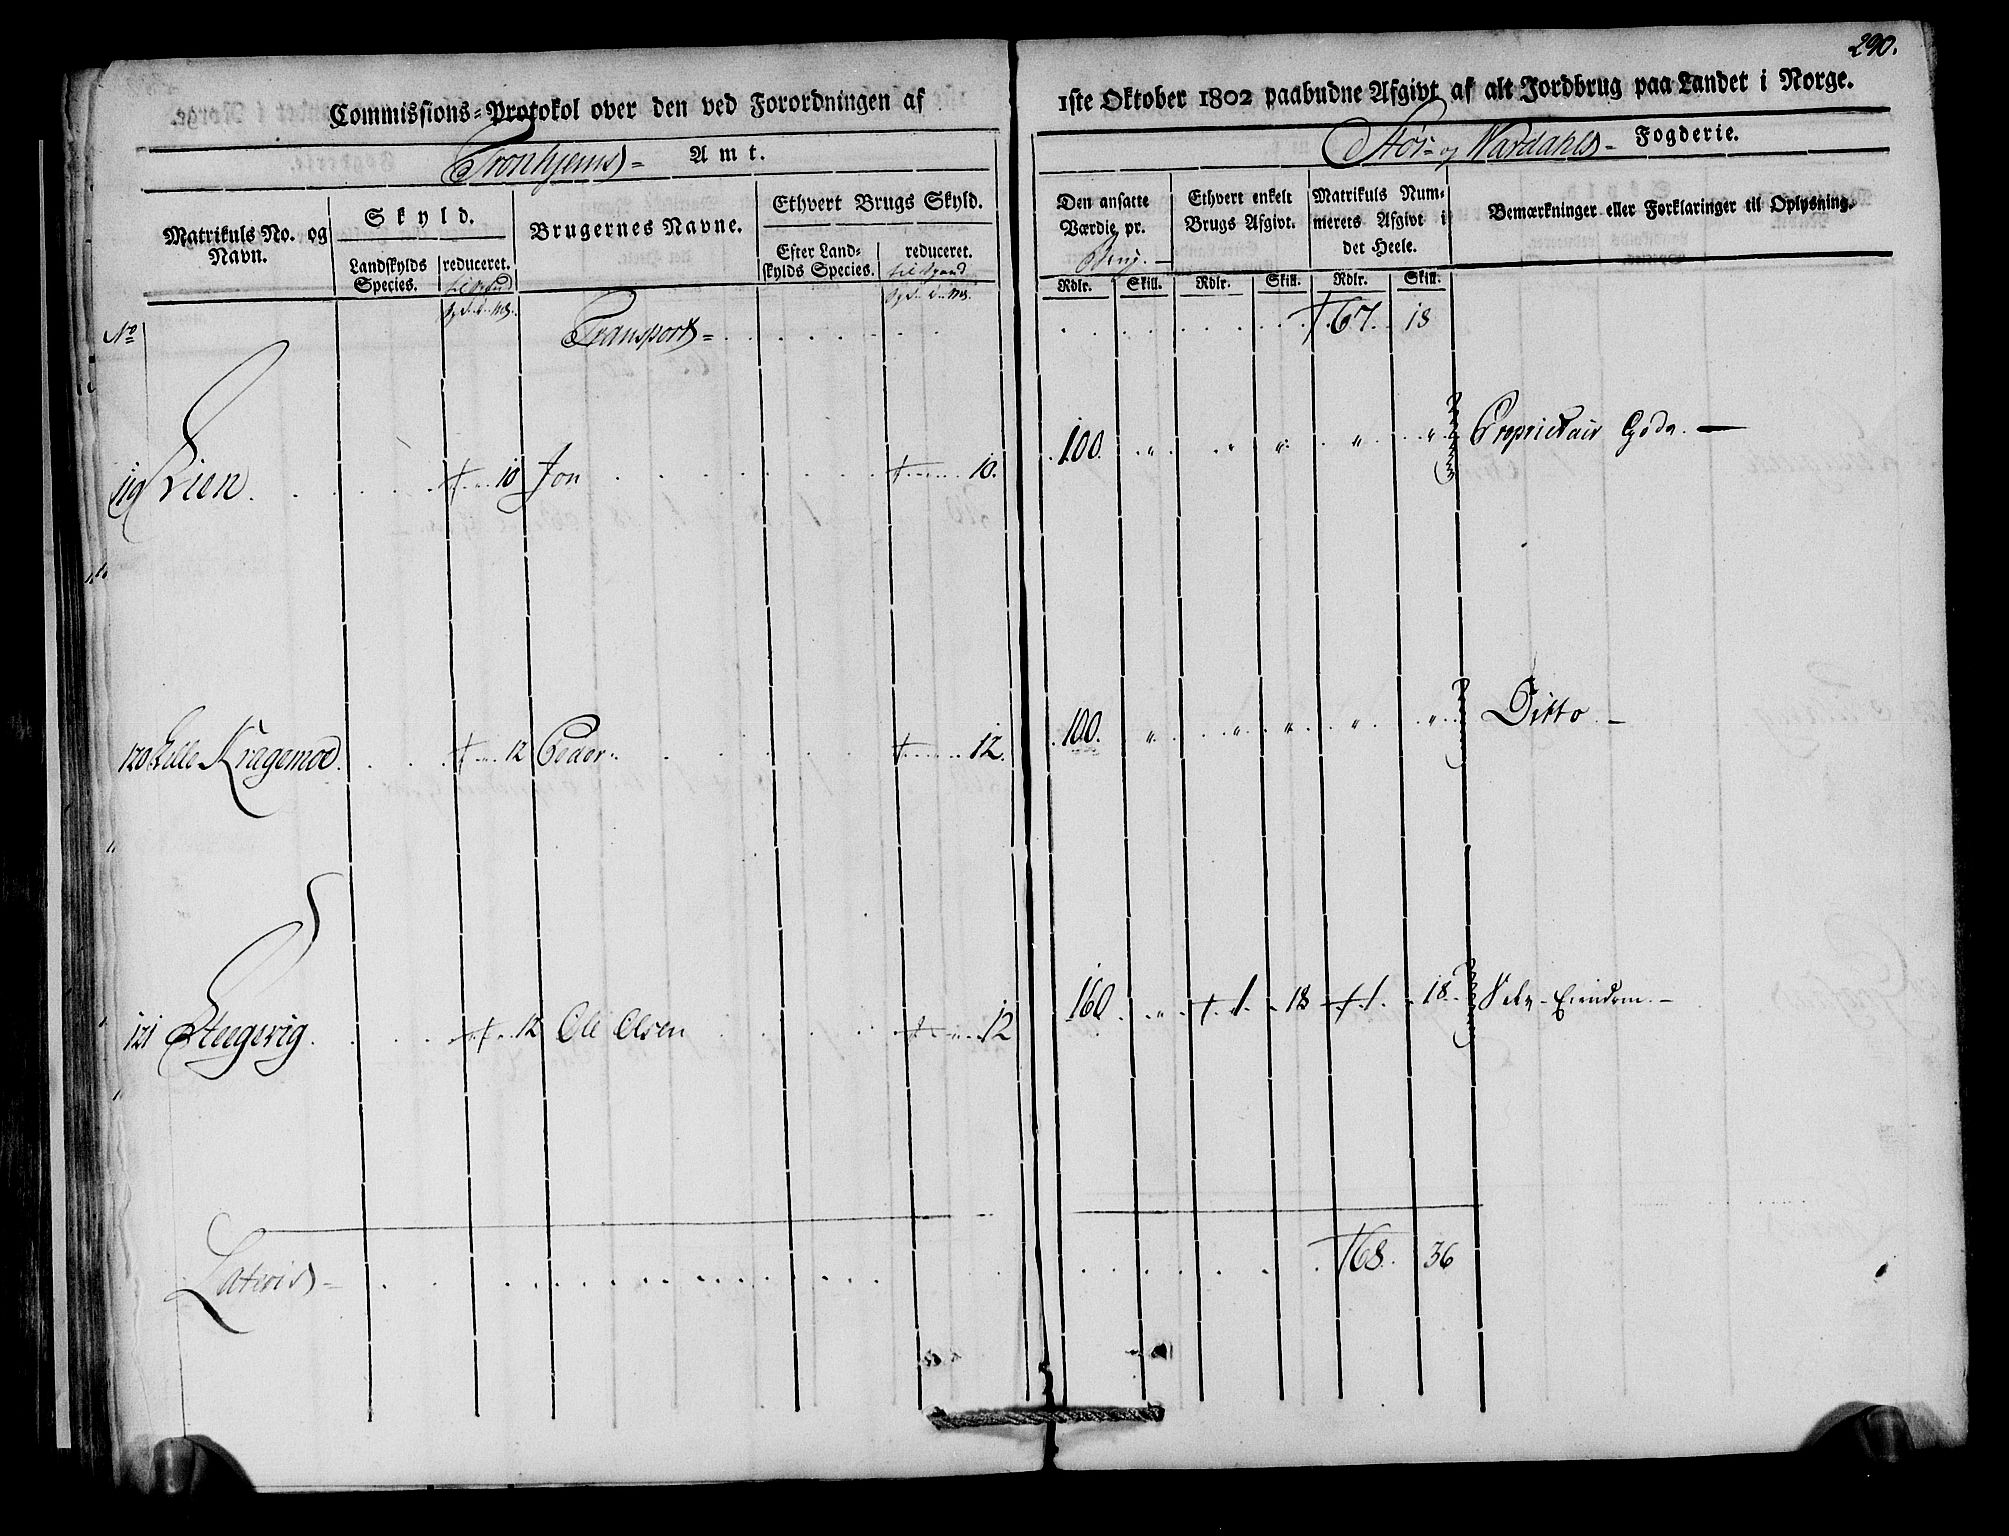 290.
Commissions-Protokol over den ved Forordningen af 1ste Oktober 1802 paabudne Afgivt af alt Jordbrug paa Landet i Norge.
Tronhjems- Amt. Stør- og Værdahls- Fogderie.
Matrikuls No. og Navn.
Skyld.
Landskylds Species.
reduceret.
Brugernes Navne.
Ethvert Brugs Skyld.
Efter Landskylds Species.
reduceret.
Den ansatte Værdie pr.
Ethvert enkelt Brugs Afgivt.
Matrikuls Nummerets Afgivt i det Heele.
Bemærkninger eller Forklaringer til Oplysning.
Rdlr. Skill. Rdlr. Skill. Rdlr. Skill.
No Transport = 67. 18
119 Lien 10 Jon 10. 100. " " " " " Proprietair Gods. —
120 Lille Kragemoe 12 Peder 12. 100. " " " " " Ditto. —
121 Steegsvig 12 Ole Olsen 12 160 " 1. 18 1. 18. Selv-Eiendom. —
Lateris - 68. 36